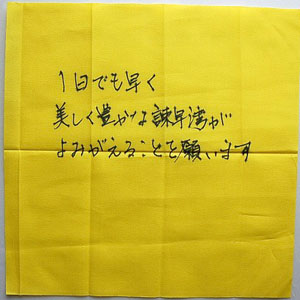 1日でも早く
美しく豊かな諫早湾が
よみがえることを願います